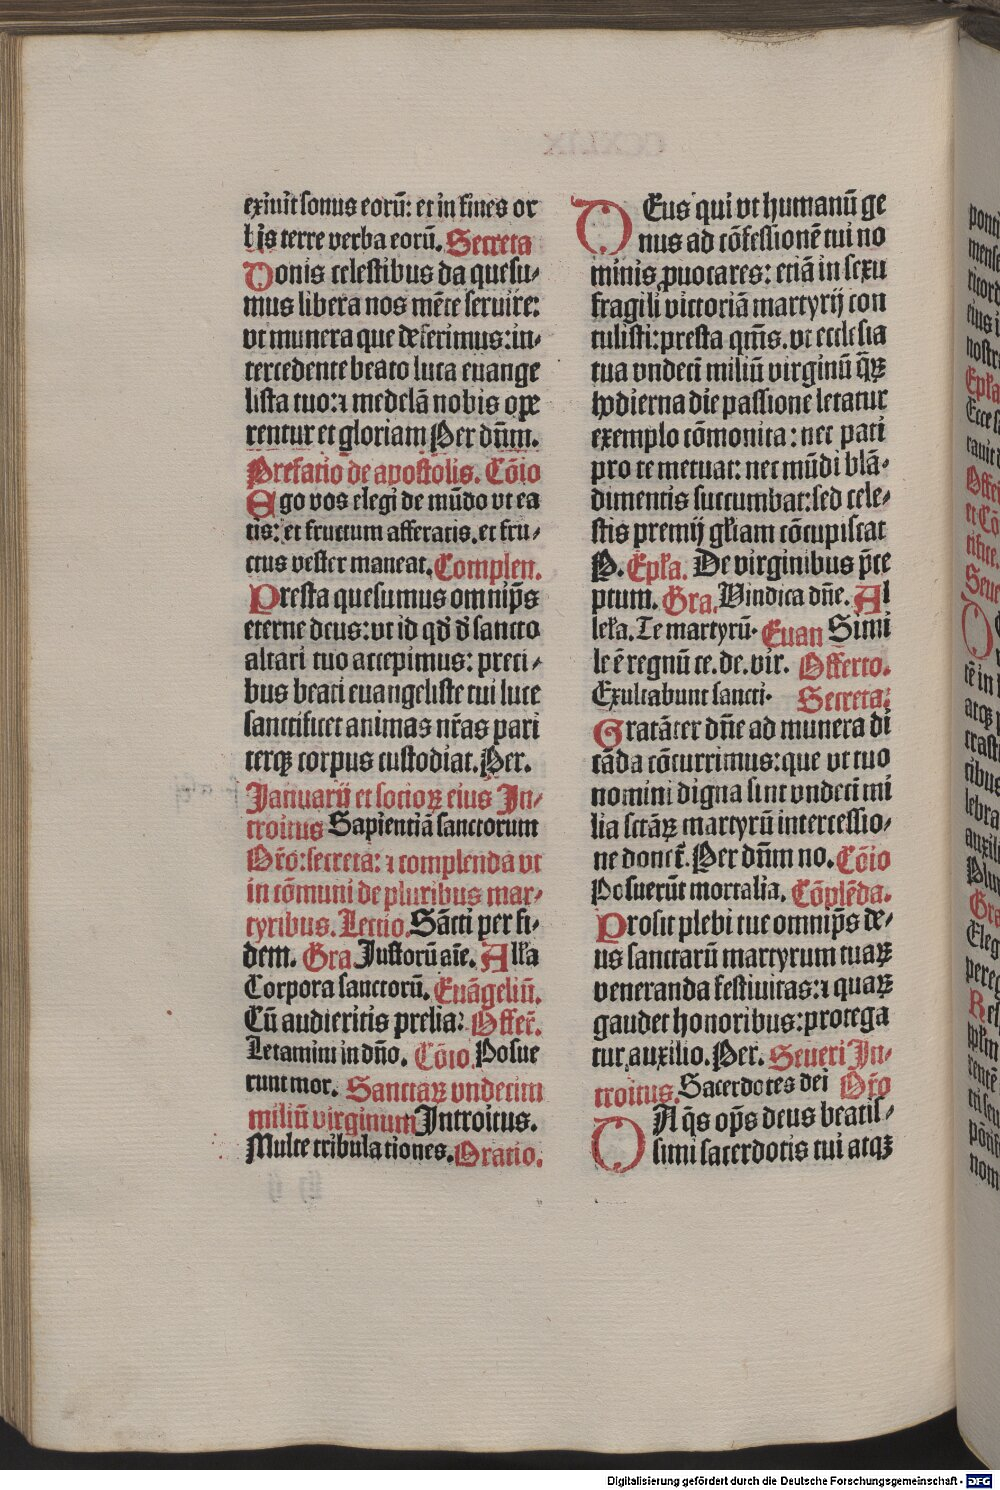 exiuit sonus eorū: et in fines or
bis terre verba eorū. Secreta
Donis celestibus da quesu-
mus libera nos mēte seruire:
vt munera que deferimus: in-
tercedente beato luca euange
lista tuo: ⁊ medelā nobis ope
rentur et gloriam Per dn̄m.
Prefatio de apostolis. Cōio
Ego vos elegi de mūdo vt ea
tis: et fructum afferatis. et fru-
ctus vester maneat. Complen.
Presta quesumus omnip̄s
eterne deus: vt id qđ đ sancto
altari tuo accepimus: preci-
bus beati euangeliste tui luce
sanctificet animas nr̄as pari
terqꝫ corpus custodiat. Per.
Januarij et socioꝝ eius In-
troitus Sapientiā sanctorum
Or̄o: secreta: ⁊ complenda vt
in cōmuni de pluribus mar-
tyribus. Lectio. Sācti per fi-
dem. Gra Justorū aīe. Alła
Corpora sanctorū. Euāgeliū.
Cū audieritis prelia: Offer̄.
Letamini in dn̄o. Cōio. Posue
runt mor. Sanctaꝝ vndecim
miliū virginum Introitus.
Multe tribulationes. Oratio.
DEus qui vt humanū ge
nus ad cōfessionē tui no
minis ꝓuocares: etiā in sexu
fragili victoriā martyrij con
tulisti: presta qm̄s. vt ecclesia
tua vndecī miliū virginū q̄ꝝ
hodierna die passione letatur
exemplo cōmonita: nec pati
pro te metuat: nec mūdi blā-
dimentis succumbat: sed cele-
stis premij głiam cōcupiscat
P. Epła. De virginibus p̄ce
ptum. Gra. Vindica dn̄e. Al
leła. Te martyrū. Euan Simi
le ē regnū ce. de. vir. Offerto.
Exultabunt sancti. Secreta:
Gratāter dn̄e ad munera di
cāda cōcurrimus: que vt tuo
nomini digna sint vndecī mi
lia sctāꝝ martyrū intercessio-
ne donet̄. Per dn̄m no. Cōio
Posuerūt mortalia. Cōplēda.
Prosit plebi tue omnip̄s de-
us sanctarū martyrum tuaꝝ
veneranda festiuitas: ⁊ quaꝝ
gaudet honoribus: protega
tur auxilio. Per. Seueri In-
troitus. Sacerdotes dei Or̄o
DA q̄s op̄s deus beatis-
simi sacerdotis tui atqꝫ
Digitalisierung gefördert durch die Deutsche Forschungsgemeinschaft - DFG